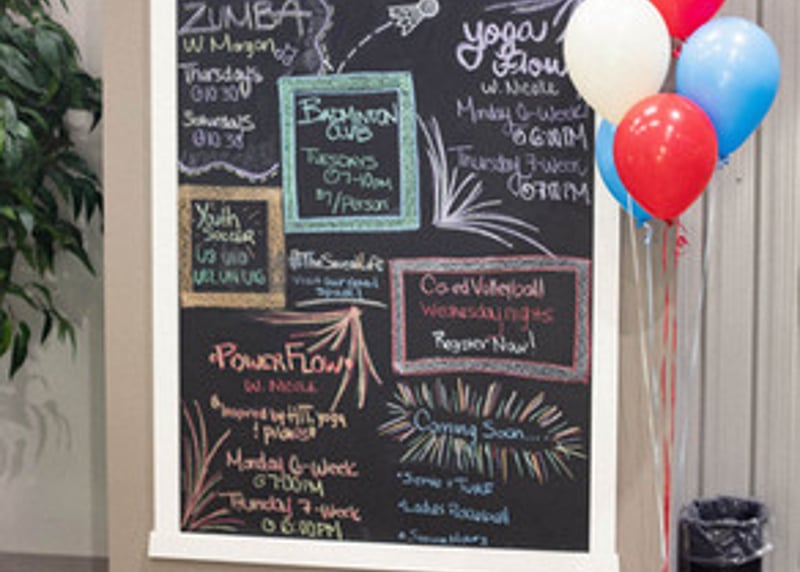 ZUMBA
W. Morgan
Thursdays
@10:30
Saturdays
@10:30
Badminton
Club
Tuesdays
@7-10pm
$7/Person
yoga
Flow
W. Nicole
Monday 6-Week
@6:00PM
Thursday 7-Week
Youth
Soccer
U8 U10
U12 U14 U16
Coed Volleyball
Wednesday nights
Register Now!
PowerFlow
W. Nicole
Inspired by HIIT, yoga
Monday 6-Week
@7:00PM
Thursday 7-Week
@6:00PM
Coming Soon...